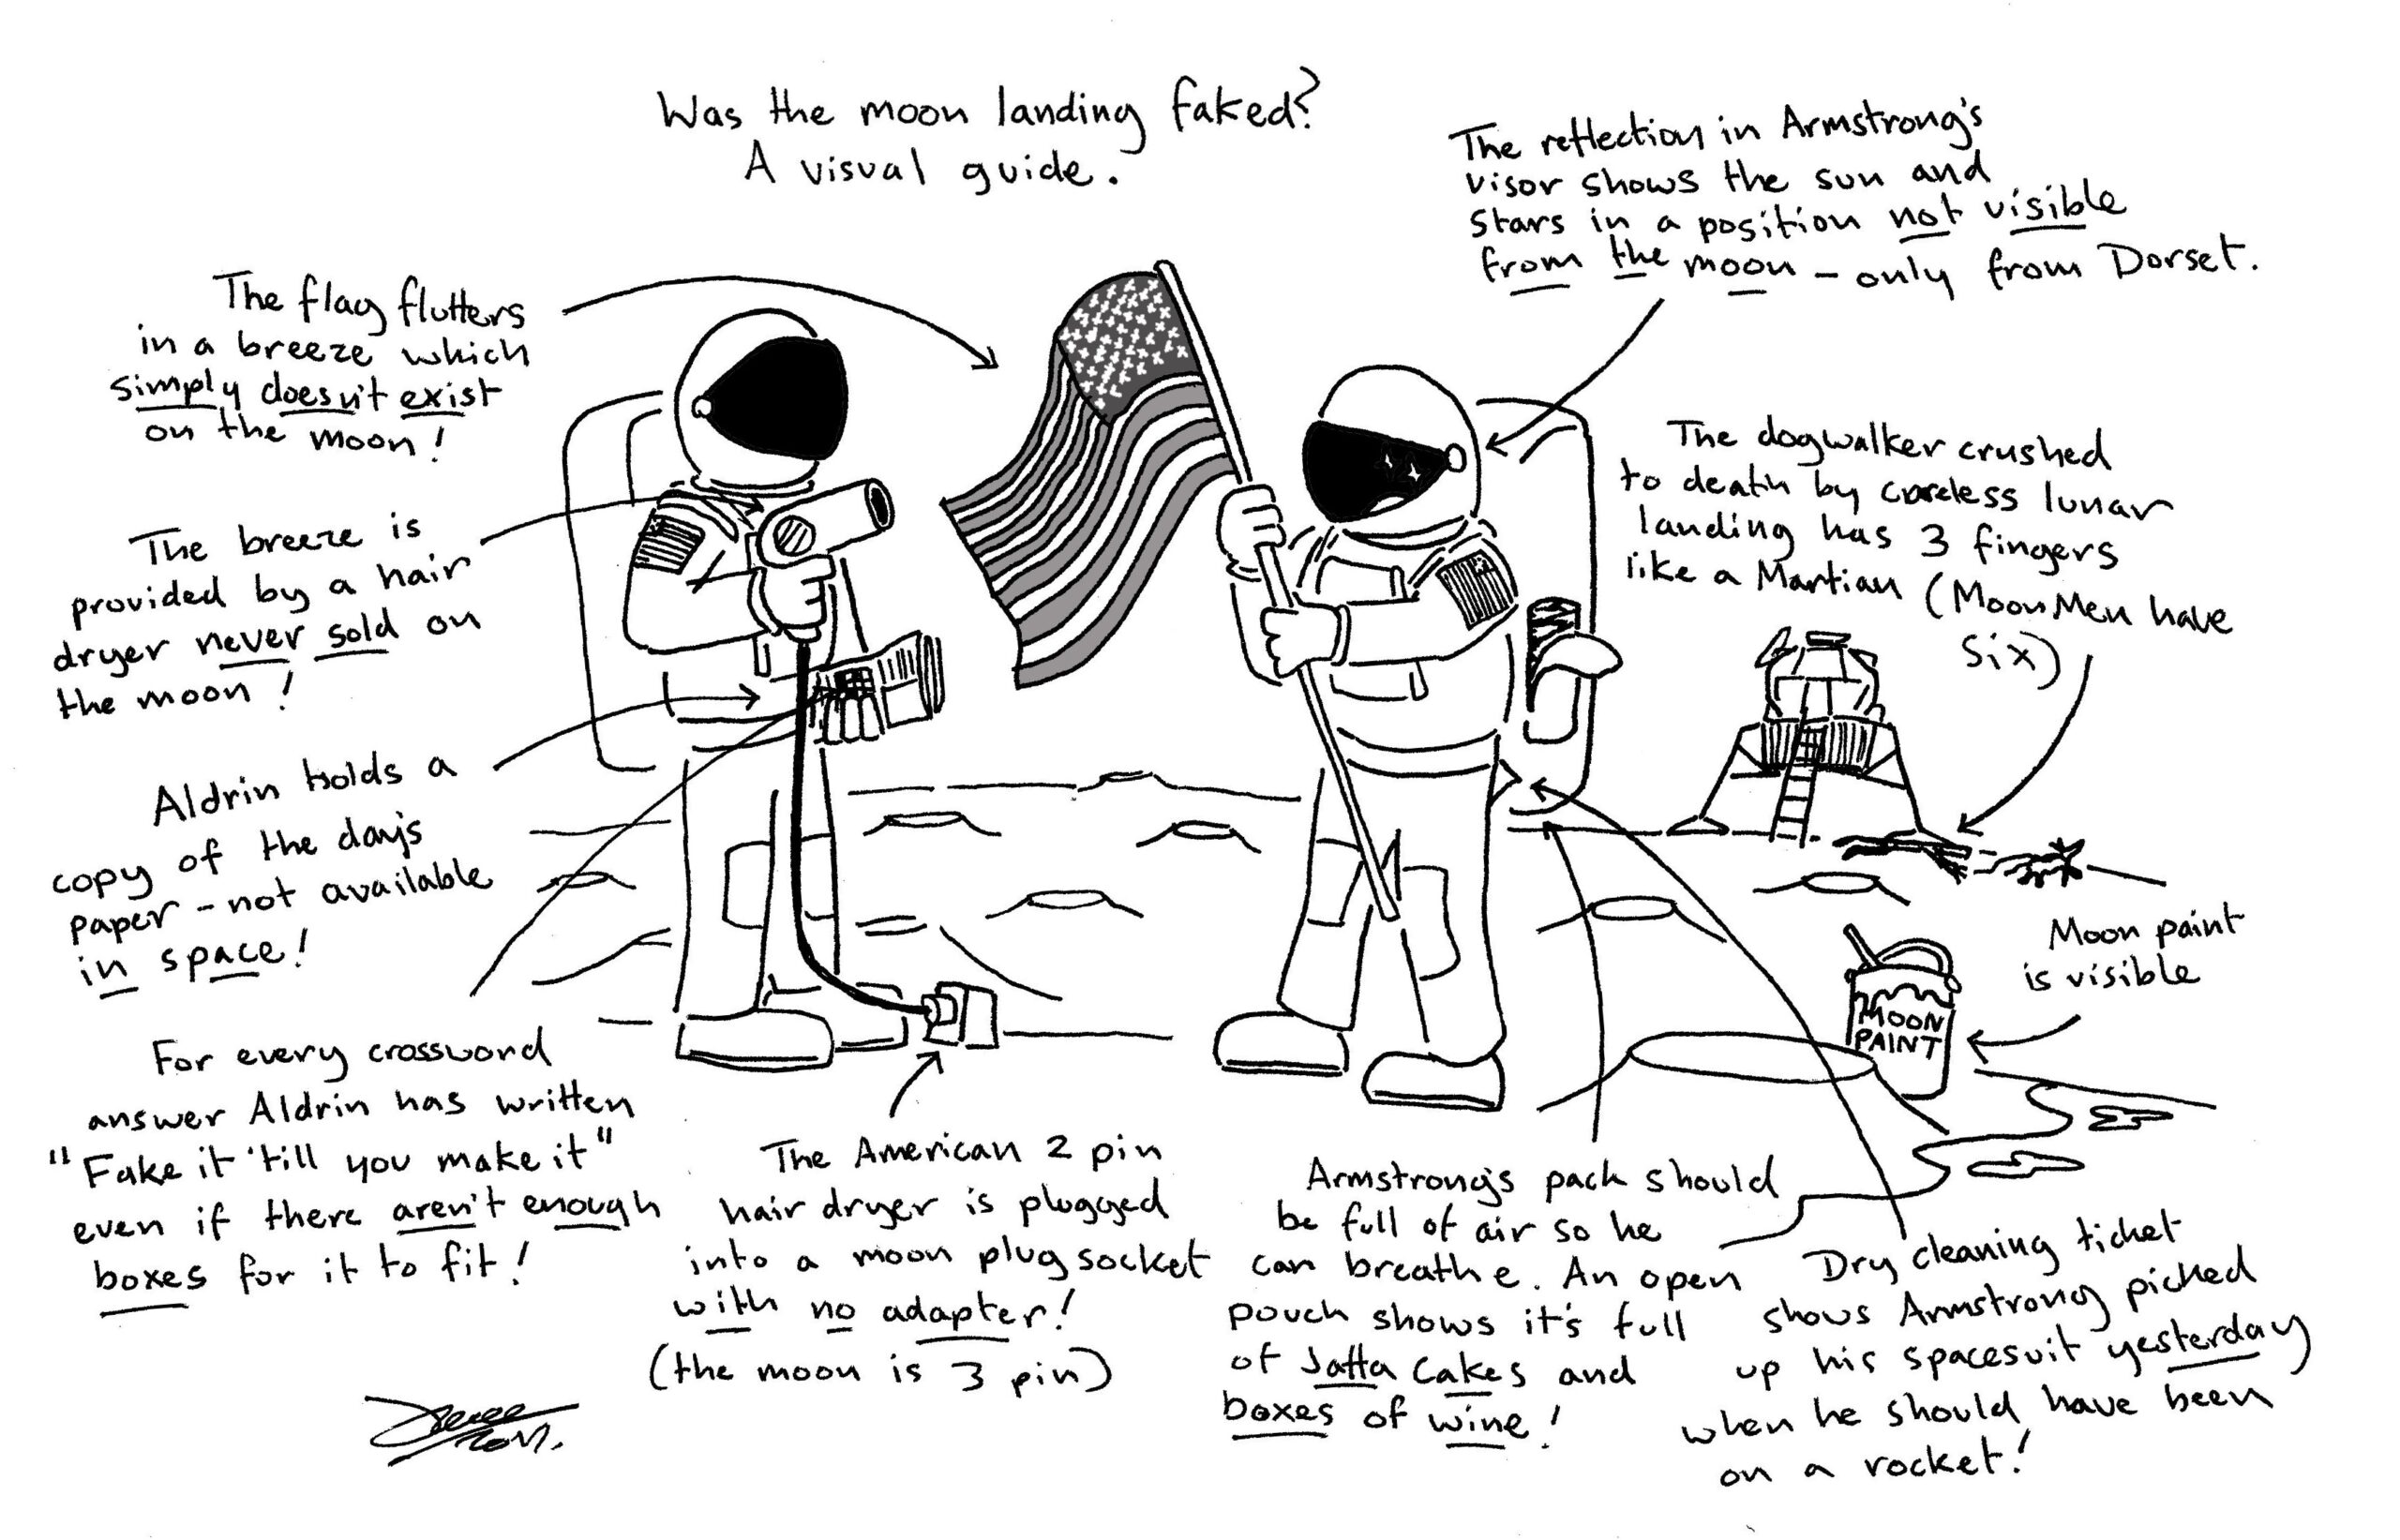 Was the moon landing faked?
A visual guide.
The reflection in Armstrong's
visor shows the sun and
stars in a position not visible
from the moon – only from Dorset.
The flag flutters
in a breeze which
simply doesn't exist
on the moon!
The dogwalker crushed
to death by careless lunar
landing has 3 fingers
like a Martian (MoonMen have
six)
The breeze is
provided by a hair
dryer never sold on
the moon!
Aldrin holds a
copy of the day's
paper – not available
in space!
Moon paint
is visible
MOON
PAINT
For every crossword
answer Aldrin has written
"Fake it 'till you make it"
even if there aren't enough
boxes for it to fit!
The American 2 pin
hair dryer is plugged
into a moon plug socket
with no adapter!
(the moon is 3 pin)
Armstrong's pack should
be full of air so he
can breathe. An open
pouch shows it's full
of Jaffa Cakes and
boxes of wine!
Dry cleaning ticket
shows Armstrong picked
up his spacesuit yesterday
when he should have been
on a rocket!